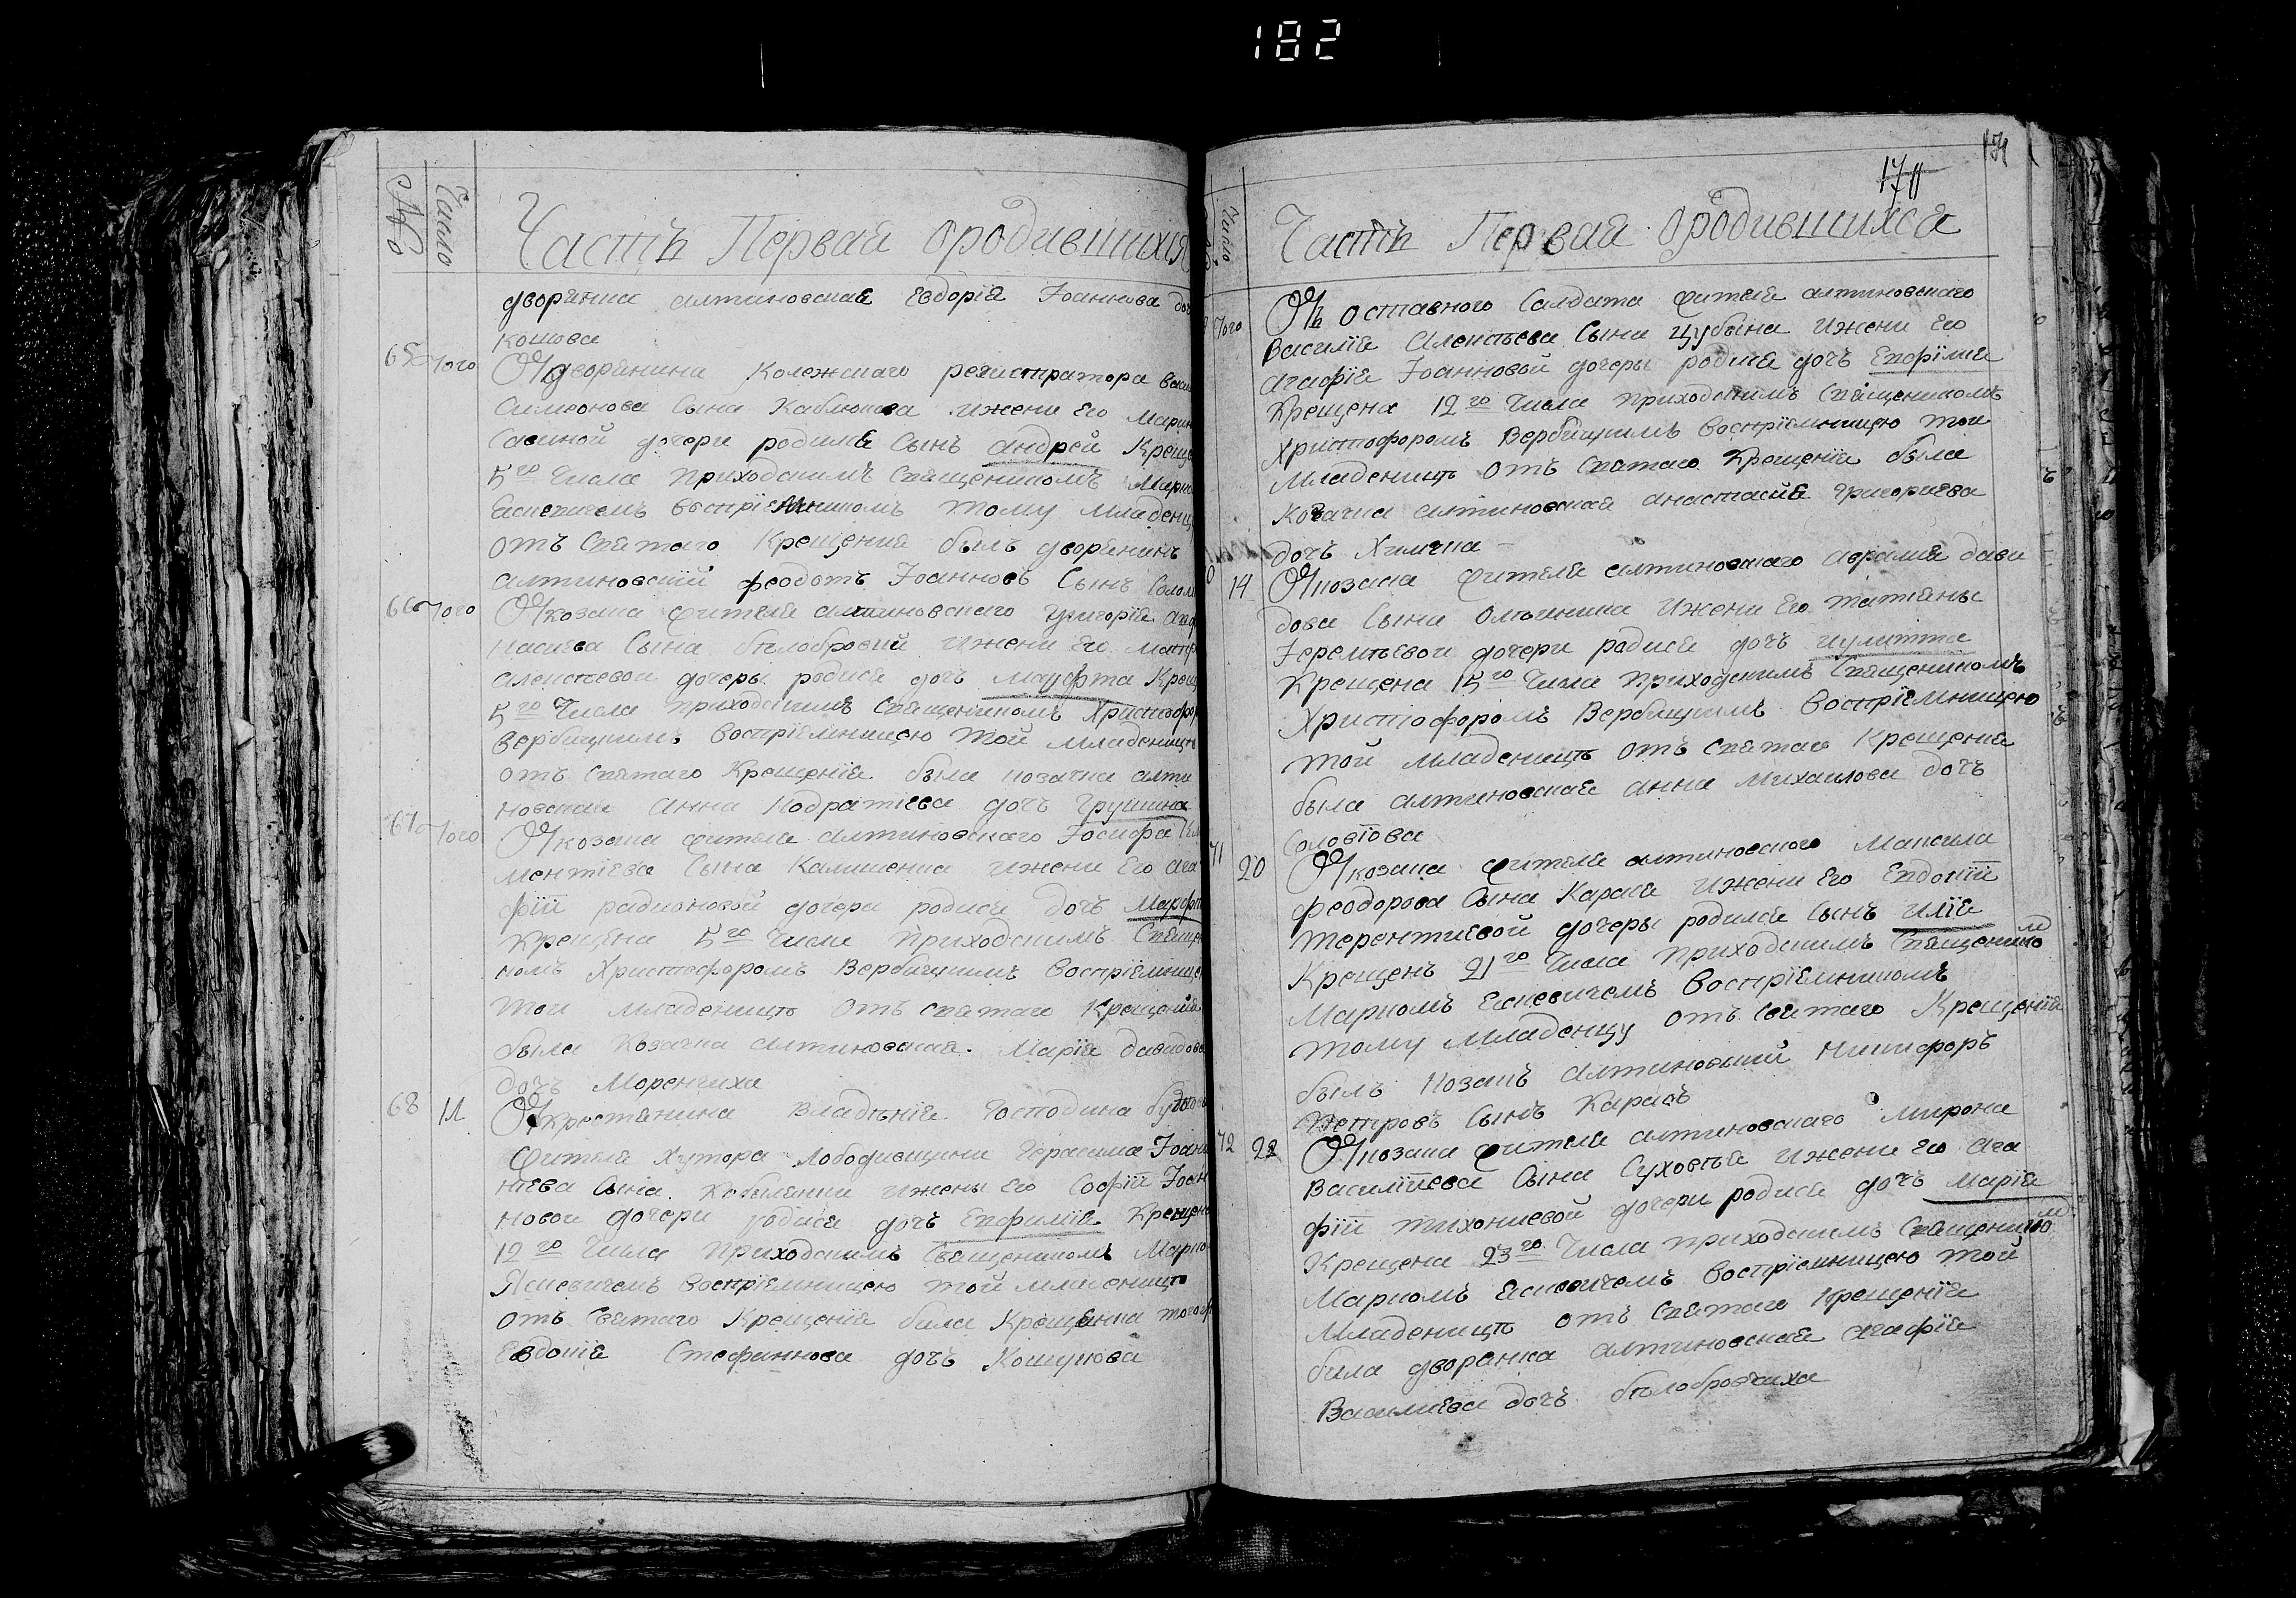 182
№ Число
Часть Первая ородившихся
дворянка алтиновская Евдория Іоаннова доч
кошова
65 того От дворянина Колежскаго регистратора Васил
Симеонова Сына Каблюкова ижени Его Марин
Савиной дочери родился Сынъ андрей Креще
5го Числа Приходскимъ Священикомъ Марко
Ескевичемъ Воспріемникомъ тому младенцу
отъ святаго Крещения былъ дворянинъ
алтиновскій феодотъ Іоанновъ Сынъ
66 того От козака жителя алтиновскаго григорія Афа
насиева Сына белобровки ижени Его
алексеевои дочеры родися дочъ марфта Крещ
5го Числа приходскимъ Священикомъ Христофор
Вербицкимъ воспріемницею той младеницъ
отъ святаго Крещенія была козачка алти
новская Анна Кодратиева дочъ грушина
67 того От козака жителя алтиновскаго Іосифа Кли
ментіева Сына Калишенка ижени Его ага
фіи радионовой дочери родися дочъ Марфта
Крещена 5го Числа Приходскимъ Священ
комъ Христофоромъ Вербицкимъ Воспріемницею
тои младеницъ отъ святаго Крещенія
была Козачка алтиновская Марія давидова
дочъ Моренчиха
68 11 От крестянина Владѣнія Господина
жителя хутора Лободивщини Герасима Іоан
ніева Сына Кобилянки ижены Его Софіи Іоан
новои дочери родися дочъ Епфимія Крещена
12го Числа Приходскимъ Священикомъ Марко
Яскевичемъ Воспріемницею той младеницъ
отъ Святаго Крещенія била Крещянка того ж
Евдокія Стефаннова дочъ Кошукова
170
Число
Часть Первая ородившихся
того Отъ оставного Салдата жителя алтиновскаго
Василія Алексѣева Сына Цубына ижени Его
агафіи Іоанновой дочеры родися дочъ Епфімія
Крещена 12го Числа приходскимъ Священикомъ
Христофоромъ Вербицкимъ Воспріемницею той
Младеницъ отъ Святаго Крещенія была
Козачка алтиновская анастасия григориева
дочъ Химична
14 От козака жителя алтиновскаго аврамия дави
дова Сына Олѣиника Ижени Его татияны
Іеремѣевои дочери родися дочъ иулитта
Крещена 15го Числа приходскимъ Священикомъ
Христофоромъ Вербицкимъ Воспріемницею
той младеницъ отъ святаго Крещения
была алтиновская анна михаилова дочъ
Соловіова
71 20 От козака жителя алтиновского Максима
феодорова Сына Карася Ижени Его Евдокіи
терентиевой дочеры родился Сынъ иліа
Крещенъ 21го Числа приходскимъ Священико м
Маркомъ Ескевичемъ воспріемникомъ
тому младенцу отъ святаго Крещенія
былъ козакъ алтиновский Никифоръ
Петровъ Сынъ Карась
72 22 От козака жителя алтиновскаго Мирона
Василіева Сына Суховѣя ижени Его Ага
фіи тихониевой дочери родися дочъ Марія
Крещена 23го Числа приходскимъ Священико м
Маркомъ Ескевичемъ Воспріемницею той
Младеницъ отъ святаго Крещенія
била дворанка алтиновская агафія
Василиева дочъ бѣлобровчиха